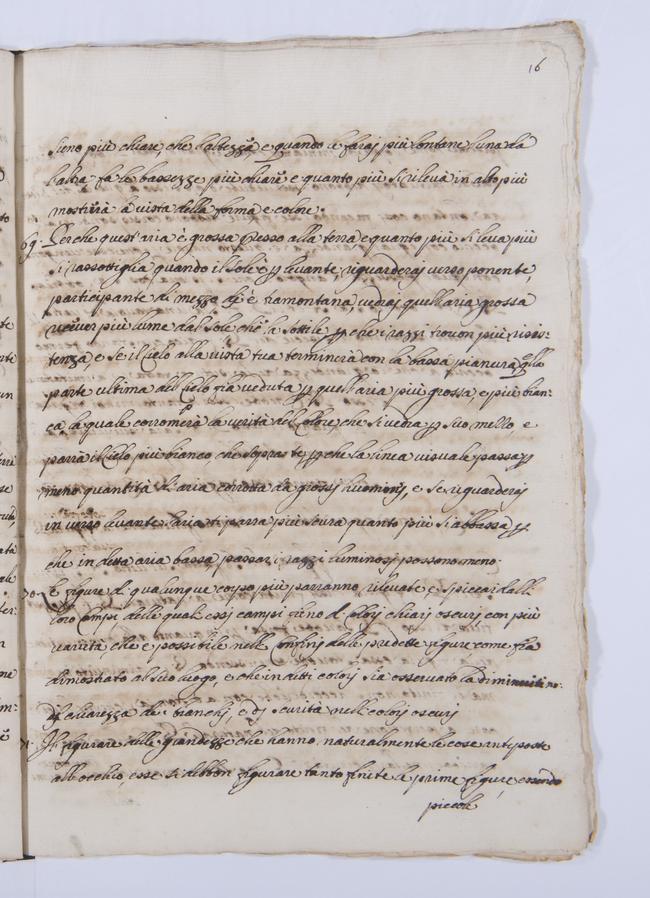 16
sieno più chiare che l'altezza, e quando le faraj più lontane l'una da
l'altra fa le bassezze più chiare e quanto più si rileva in alto più
mostrerà à vista della forma e colore.
69. Perche quest'aria è grossa presso alla terra e quanto più si leva più
si rassottiglia quando il sole è ꝑ levante, riguarderaj verso ponente,
participante di mezzo dj e tramontana vedraj quell'aria grossa
ricever più lume dal sole che la sottile ꝑ che i razzi trouon più risis-
tenza, e se il cielo alla vista tua terminerà con la bassa pianura qlla
parte ultima del cielo fia veduta ꝑ quell'aria più grossa, e più bian-
ca la quale corromperà la verità del colore, che si vedra ꝑ suo mezzo e
parrà il cielo più bianco che sopra te ꝑ che la linea visuale passa ꝑ
meno quantità di aria corrotta da grossi huomorj, e se riguarderaj
in verso levante l'aria ti parra più scura quanto più si abbassa ꝑ
che in detta aria bassa passar i razzi luminosi possono meno.
70. Le figure di qualunque corpo più parranno rilevate e spiccar dalli
loro campi delli quali essi campi sieno di colorj chiarj oscurj con più
varità che è possibile nelli confinj delle predette figure come fia
dimostrato al suo luogo, e che in ditti colorj sia osservato la diminutio.
di chiarezza de' bianchj, e dj scurità nelli colorj oscurj
71. In figurare delle grandezze che hanno naturalmente le cose anteposte
all'occhio, esse si debbon figurare tanto finite le prime figure, essendo
piccole